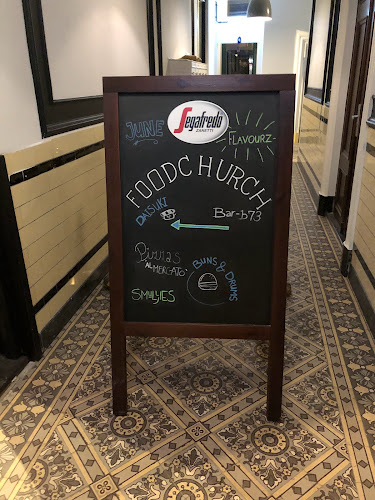 Segafredo
ZANETTI
JUNE
FLAVOURZ-
FOODCHURCH
DAISUKI
Bar-b73
Pizzas
AL MERCATO
BUNS & DRUMS
SMULLIES